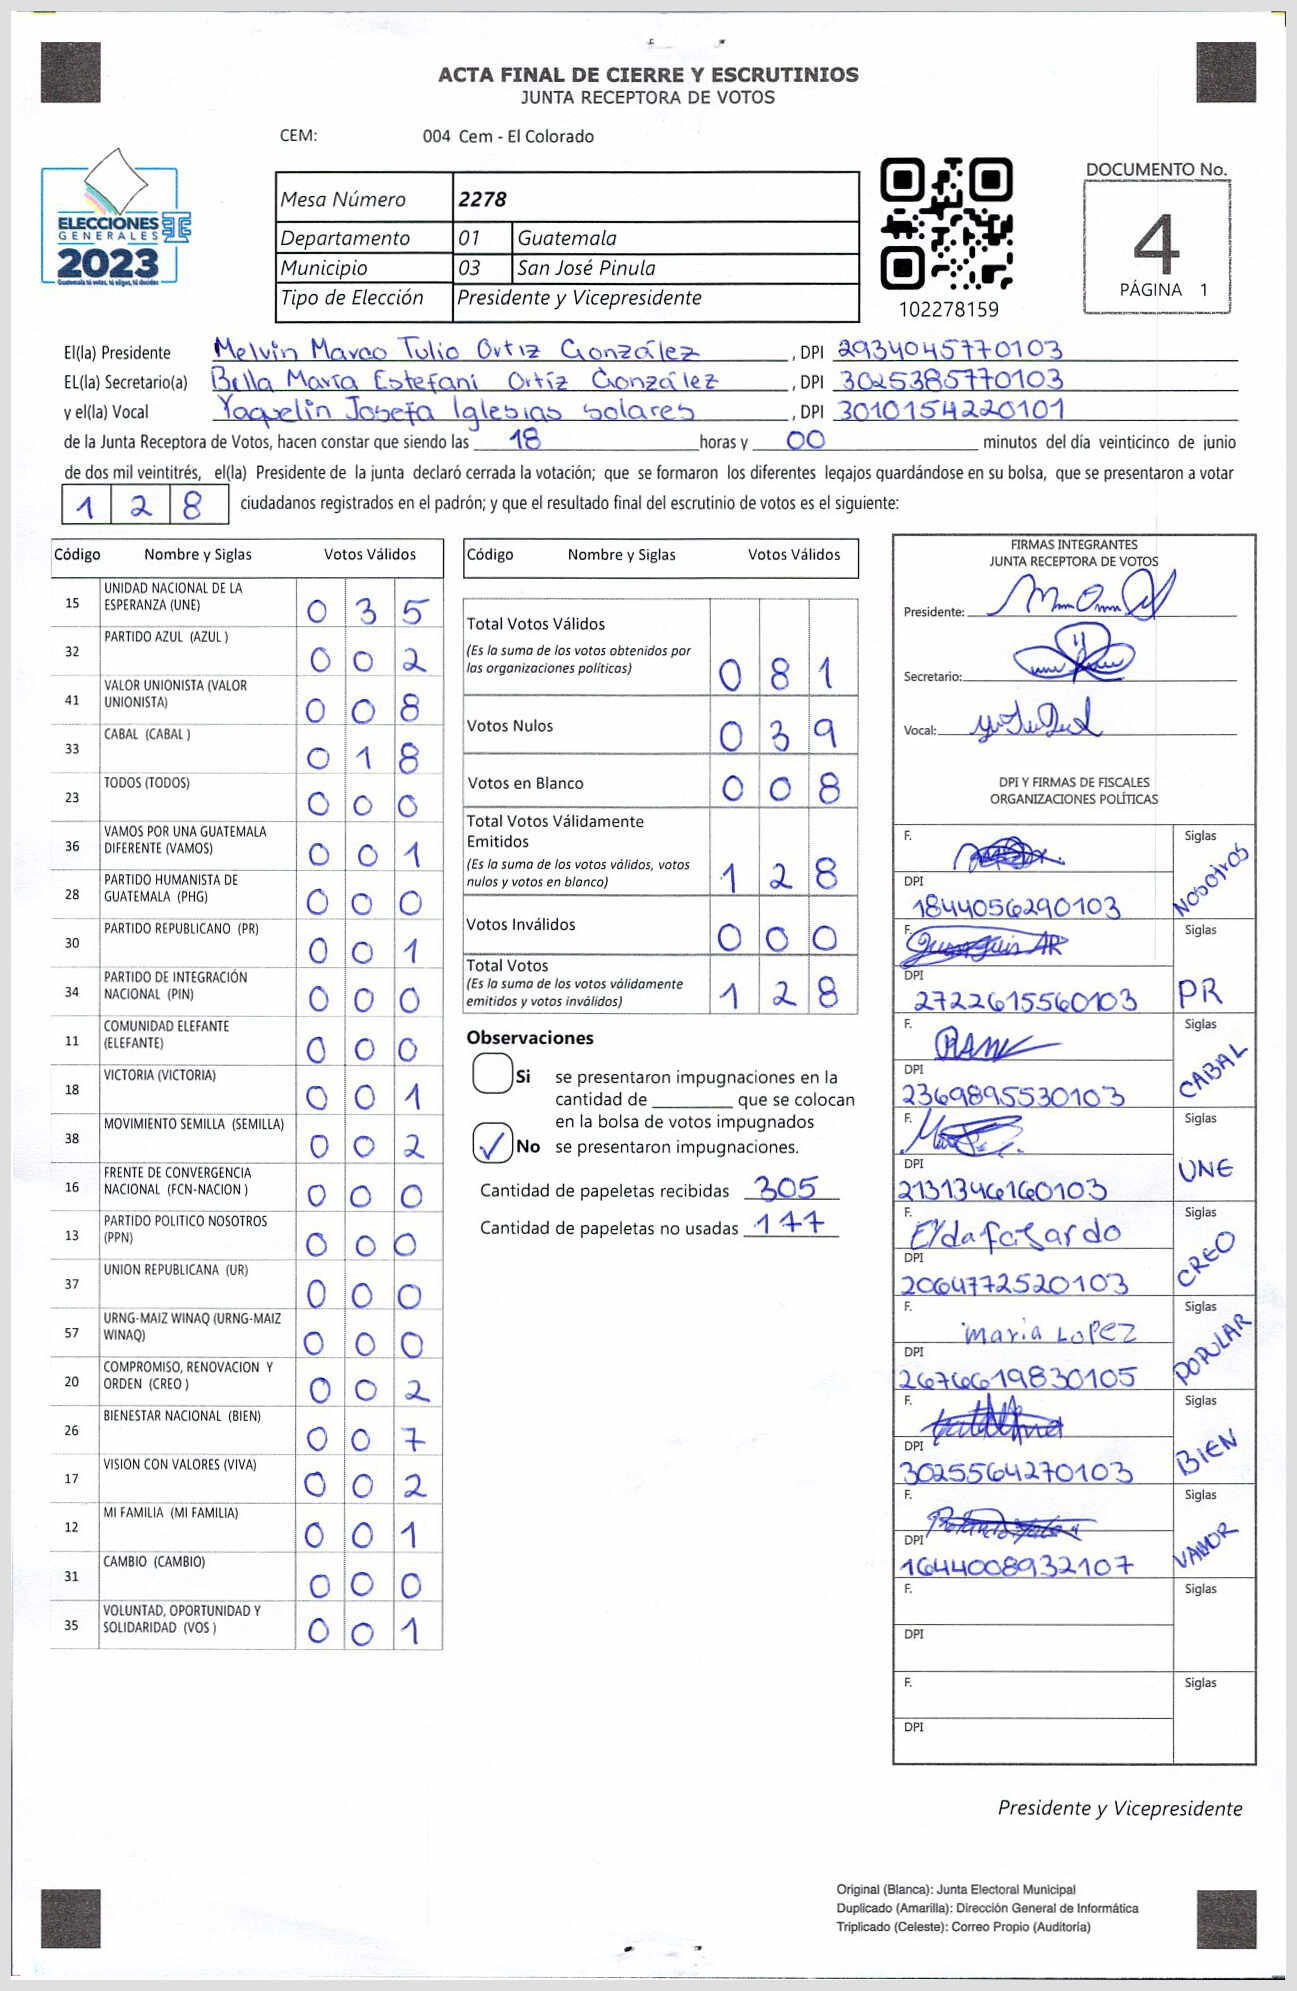 ACTA FINAL DE CIERRE Y ESCRUTINIOS
JUNTA RECEPTORA DE VOTOS
CEM: 004 Cem - El Colorado
ELECCIONES
GENERALES
2023
Guatemala tú votas, tú eliges, tú decides
Mesa Número 2278
Departamento 01 Guatemala
Municipio 03 San José Pinula
Tipo de Elección Presidente y Vicepresidente
102278159
DOCUMENTO No.
4
PÁGINA 1
El(la) Presidente Melvin Marco Tulio Ortiz González, DPI 2934045770103
EL(la) Secretario(a) Bella María Estefani Ortíz González, DPI 3025385770103
y el(la) Vocal Yaquelin Josefa Iglesias Solares, DPI 3010154220101
de la Junta Receptora de Votos, hacen constar que siendo las 18 horas y 00 minutos del día veinticinco de junio
de dos mil veintitrés, el(la) Presidente de la junta declaró cerrada la votación; que se formaron los diferentes legajos quardándose en su bolsa, que se presentaron a votar
128 ciudadanos registrados en el padrón; y que el resultado final del escrutinio de votos es el siguiente:
Código Nombre y Siglas Votos Válidos
15 UNIDAD NACIONAL DE LA
ESPERANZA (UNE) 0 3 5
32 PARTIDO AZUL (AZUL ) 0 0 2
41 VALOR UNIONISTA (VALOR
UNIONISTA) 0 0 8
33 CABAL (CABAL ) 0 1 8
23 TODOS (TODOS) 0 0 0
36 VAMOS POR UNA GUATEMALA
DIFERENTE (VAMOS) 0 0 1
28 PARTIDO HUMANISTA DE
GUATEMALA (PHG) 0 0 0
30 PARTIDO REPUBLICANO (PR) 0 0 1
34 PARTIDO DE INTEGRACIÓN
NACIONAL (PIN) 0 0 0
11 COMUNIDAD ELEFANTE
(ELEFANTE) 0 0 0
18 VICTORIA (VICTORIA) 0 0 1
38 MOVIMIENTO SEMILLA (SEMILLA) 0 0 2
16 FRENTE DE CONVERGENCIA
NACIONAL (FCN-NACION ) 0 0 0
13 PARTIDO POLITICO NOSOTROS
(PPN) 0 0 0
37 UNION REPUBLICANA (UR) 0 0 0
57 URNG-MAIZ WINAQ (URNG-MAIZ
WINAQ) 0 0 0
20 COMPROMISO, RENOVACION Y
ORDEN (CREO ) 0 0 2
26 BIENESTAR NACIONAL (BIEN) 0 0 7
17 VISION CON VALORES (VIVA) 0 0 2
12 MI FAMILIA (MI FAMILIA) 0 0 1
31 CAMBIO (CAMBIO) 0 0 0
35 VOLUNTAD, OPORTUNIDAD Y
SOLIDARIDAD (VOS ) 0 0 1
Código Nombre y Siglas Votos Válidos
Total Votos Válidos
(Es la suma de los votos obtenidos por
las organizaciones políticas) 0 8 1
Votos Nulos 0 3 9
Votos en Blanco 0 0 8
Total Votos Válidamente
Emitidos
(Es la suma de los votos válidos, votos
nulos y votos en blanco) 1 2 8
Votos Inválidos 0 0 0
Total Votos
(Es la suma de los votos válidamente
emitidos y votos inválidos) 1 2 8
Observaciones
Si se presentaron impugnaciones en la
cantidad de ________ que se colocan
en la bolsa de votos impugnados
✓ No se presentaron impugnaciones.
Cantidad de papeletas recibidas 305
Cantidad de papeletas no usadas 177
FIRMAS INTEGRANTES
JUNTA RECEPTORA DE VOTOS
Presidente:
Secretario:
Vocal:
DPI Y FIRMAS DE FISCALES
ORGANIZACIONES POLÍTICAS
F. Siglas
DPI NOSOTROS
1844056290103
F. Siglas
DPI
2722615560103 PR
F. Siglas
DPI CABAL
2369895530103
F. Siglas
DPI UNE
2131346160103
F. Elda fajardo Siglas
DPI CREO
2064772520103
F. maria Lopez Siglas
DPI POPULAR
2676619830105
F. Siglas
DPI BIEN
3025564270103
F. Siglas
DPI VALOR
1644008932107
F. Siglas
DPI
F. Siglas
DPI
Presidente y Vicepresidente
Original (Blanca): Junta Electoral Municipal
Duplicado (Amarilla): Dirección General de Informática
Triplicado (Celeste): Correo Propio (Auditoría)